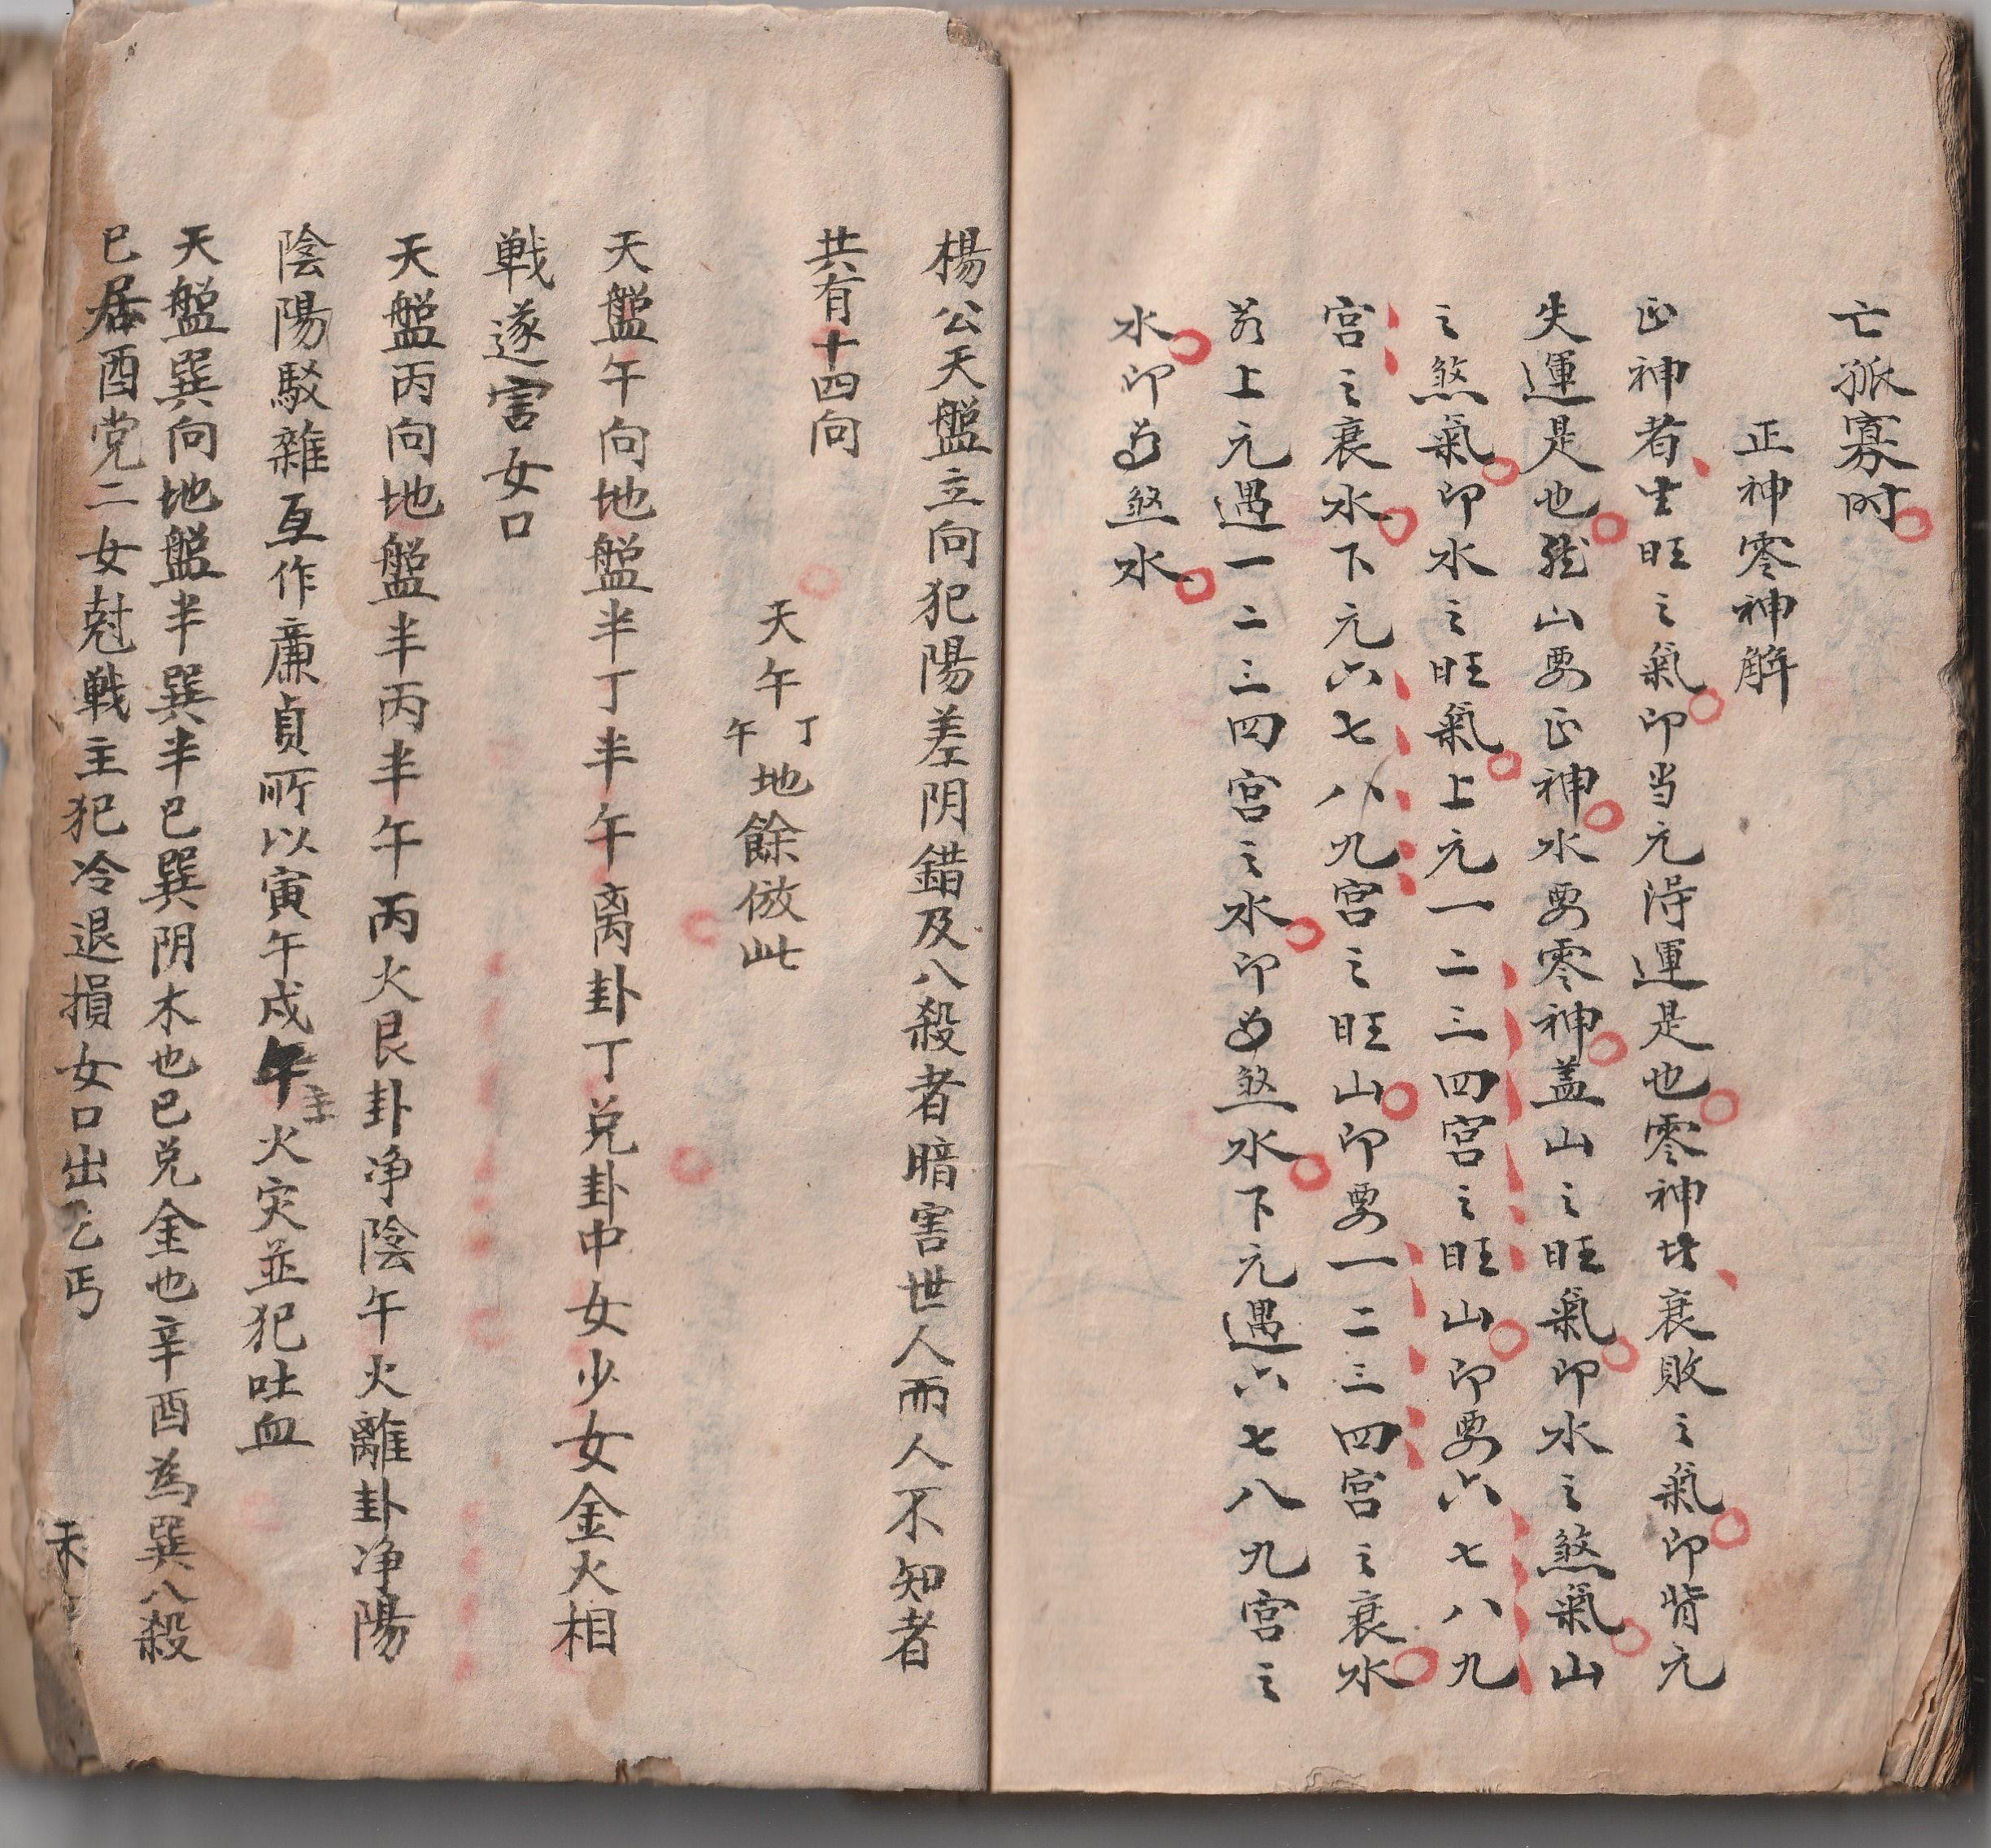 亡孤寡时
正神零神解
正神者生旺之氣印当元淂運是也零神者衰敗之氣印背元
失運是也然山要正神水要零神盖山之旺氣印水之煞氣山
之煞氣印水之旺氣上元一二三四宫之旺山印要六七八九
宫之衰水下元六七八九宫之旺山印要一二三四宫之衰水
若上元遇一二三四宫之水印為煞水下元遇六七八九宫之
水印為煞水
楊公天盤立向犯陽差阴錯及八殺者暗害世人而人不知者
共有十四向
天午丁午地餘倣此
天盤午向地盤半丁半午离卦丁兑卦中女少女金火相
戦遂害女口
天盤丙向地盤半丙半午丙火艮卦净陰午火離卦净陽
陰陽駁雜互作亷貞所以寅午戍午主火灾並犯吐血
天盤巽向地盤半巽半巳巽阴木也巳兑金也辛酉為巽八殺
巳居酉党二女尅戦主犯冷退損女口出乞丐
天